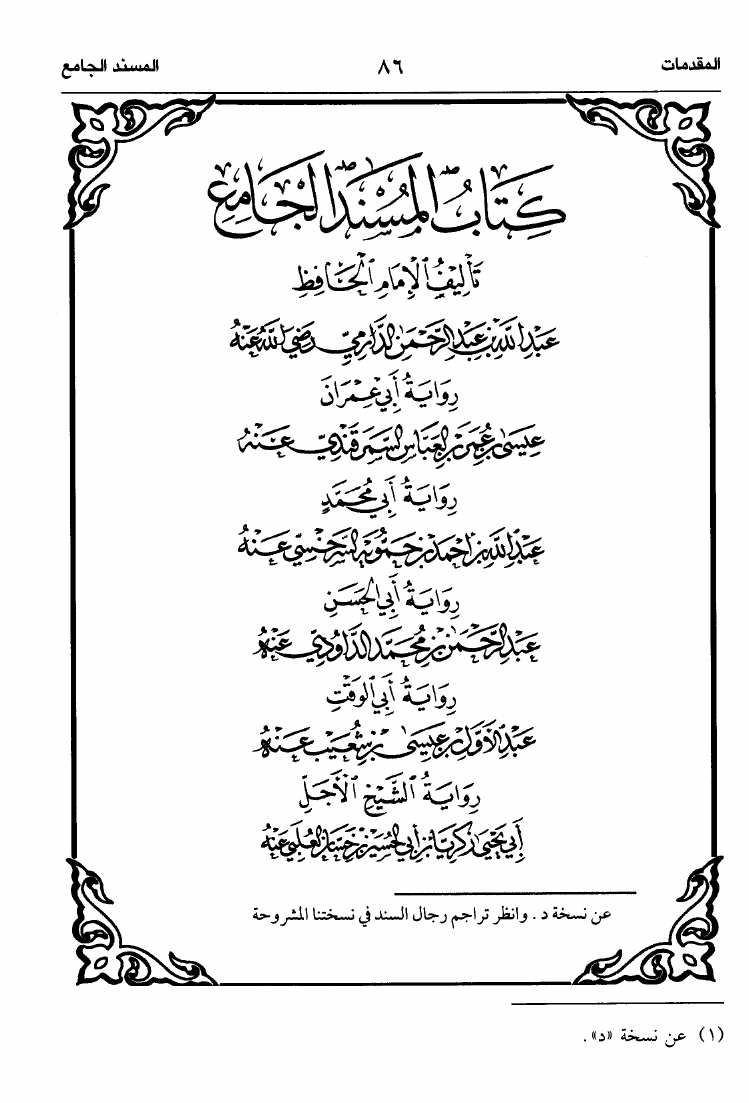 المقدمات ٨٦ المسند الجامع
كِتَابُ المُسْنَدِ الجَامِعِ
تَأْلِيفُ الإِمَامِ الحَافِظِ
عَبْدِ اللَّهِ بْنِ عَبْدِ الرَّحْمَنِ الدَّارِمِيِّ رَضِيَ اللَّهُ عَنْهُ
رِوَايَةُ أَبِي عِمْرَانَ
عِيسَى بْنِ عُمَرَ بْنِ العَبَّاسِ السَّمَرْقَنْدِيِّ عَنْهُ
رِوَايَةُ أَبِي مُحَمَّدٍ
عَبْدِ اللَّهِ بْنِ أَحْمَدَ بْنِ حَمُّويَةَ السَّرَخْسِيِّ عَنْهُ
رِوَايَةُ أَبِي الحَسَنِ
عَبْدِ الرَّحْمَنِ بْنِ مُحَمَّدٍ الدَّاوُدِيِّ عَنْهُ
رِوَايَةُ أَبِي الوَقْتِ
عَبْدِ الأَوَّلِ بْنِ عِيسَى بْنِ شُعَيْبٍ عَنْهُ
رِوَايَةُ الشَّيْخِ الأَجَلِّ
أَبِي يَحْيَى زَكَرِيَّا بْنِ أَبِي الحُسَيْنِ بْنِ حَسَّانَ العُلَبِيِّ عَنْهُ
عن نسخة د. وانظر تراجم رجال السند في نسختنا المشروحة
(١) عن نسخة «د».